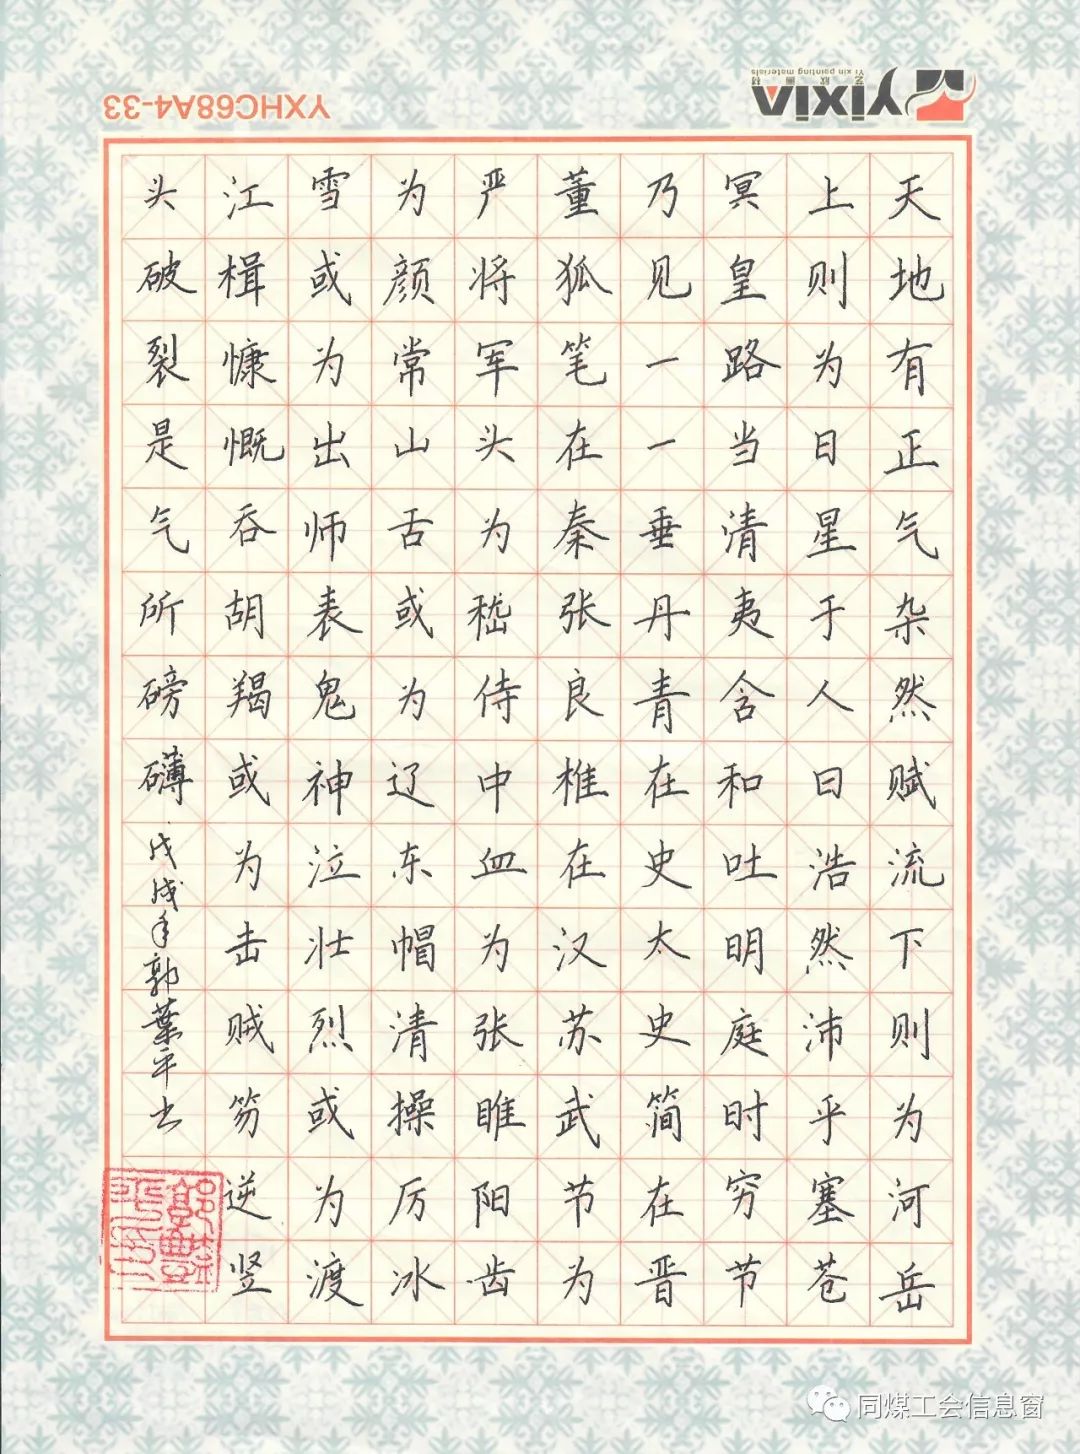 YXHC68A4-33
YiXiN
艺欣画材
Yi xin painting materials
天地有正气杂然赋流下则为河岳
上则为日星于人曰浩然沛乎塞苍
冥皇路当清夷含和吐明庭时穷节
乃见一一垂丹青在史太史简在晋
董狐笔在秦张良椎在汉苏武节为
严将军头为嵇侍中血为张睢阳齿
为颜常山舌或为辽东帽清操厉冰
雪或为出师表鬼神泣壮烈或为渡
江楫慷慨吞胡羯或为击贼笏逆竖
头破裂是气所磅礴戊戌年郭葉平书
同煤工会信息窗